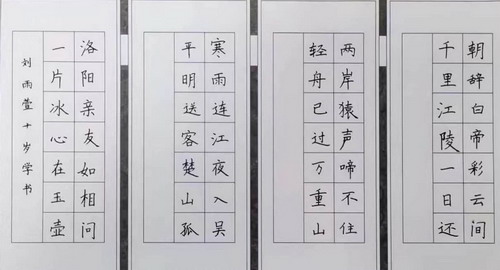 朝辞白帝彩云间
千里江陵一日还
两岸猿声啼不住
轻舟已过万重山
寒雨连江夜入吴
平明送客楚山孤
洛阳亲友如相问
一片冰心在玉壶
刘雨萱十岁学书